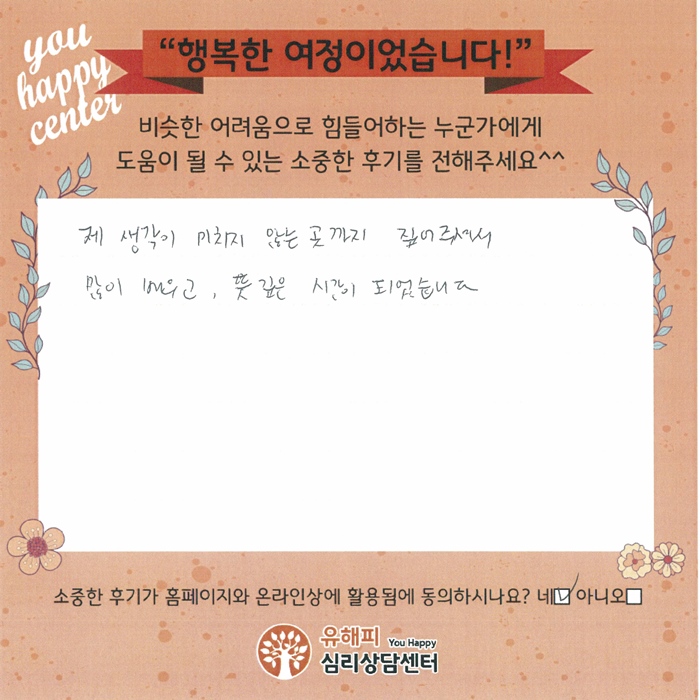 you
happy
center
“행복한 여정이었습니다!”
비슷한 어려움으로 힘들어하는 누군가에게
도움이 될 수 있는 소중한 후기를 전해주세요^^
제 생각이 미치지 않는 곳까지 짚어주셔서
많이 배우고, 뜻깊은 시간이 되었습니다
소중한 후기가 홈페이지와 온라인상에 활용됨에 동의하시나요? 네☑ 아니오☐
유해피 You Happy
심리상담센터